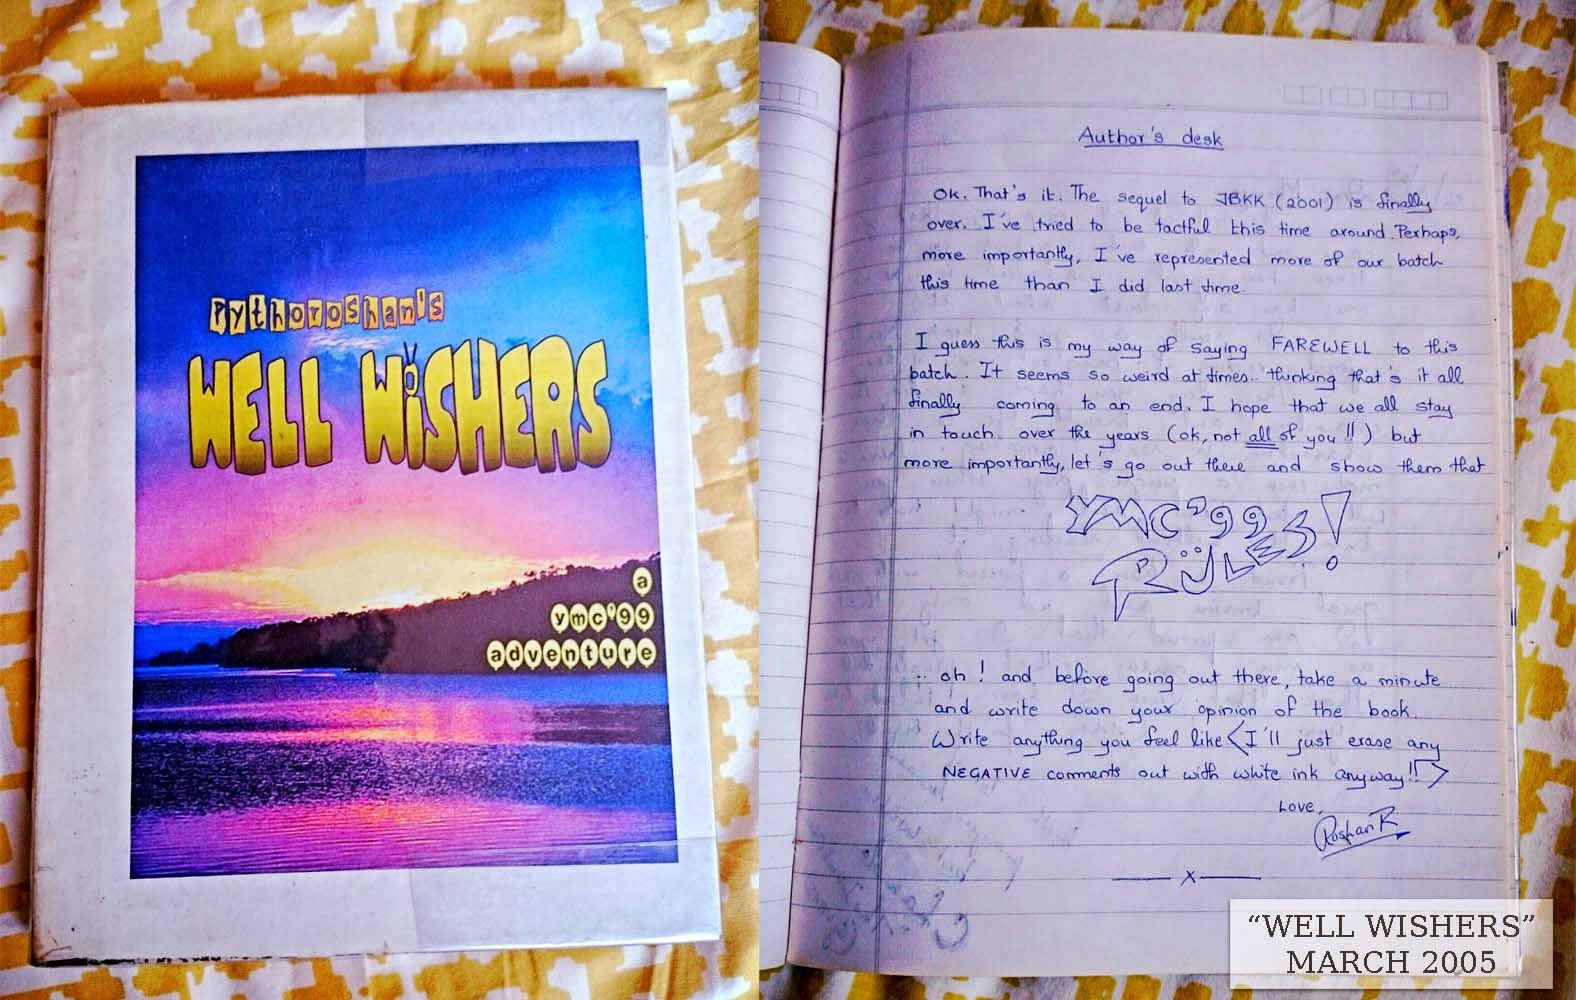 Pythoroshan's
WELL WiSHERS
a
ymc'99
adventure
Author's desk
Ok. That's it. The sequel to JBKK (2001) is finally
over. I've tried to be tactful this time around. Perhaps,
more importantly, I've represented more of our batch
this time than I did last time.
I guess this is my way of saying FAREWELL to this
batch. It seems so weird at times.. thinking that's it all
finally coming to an end. I hope that we all stay
in touch over the years (ok, not all of you !!) but
more importantly, let's go out there and show them that
YMC'99
RÜLES!
.. oh! and before going out there, take a minute
and write down your opinion of the book.
Write anything you feel like <I'll just erase any
NEGATIVE comments out with white ink anyway!!>
Love,
Roshan R
x
“WELL WISHERS”
MARCH 2005